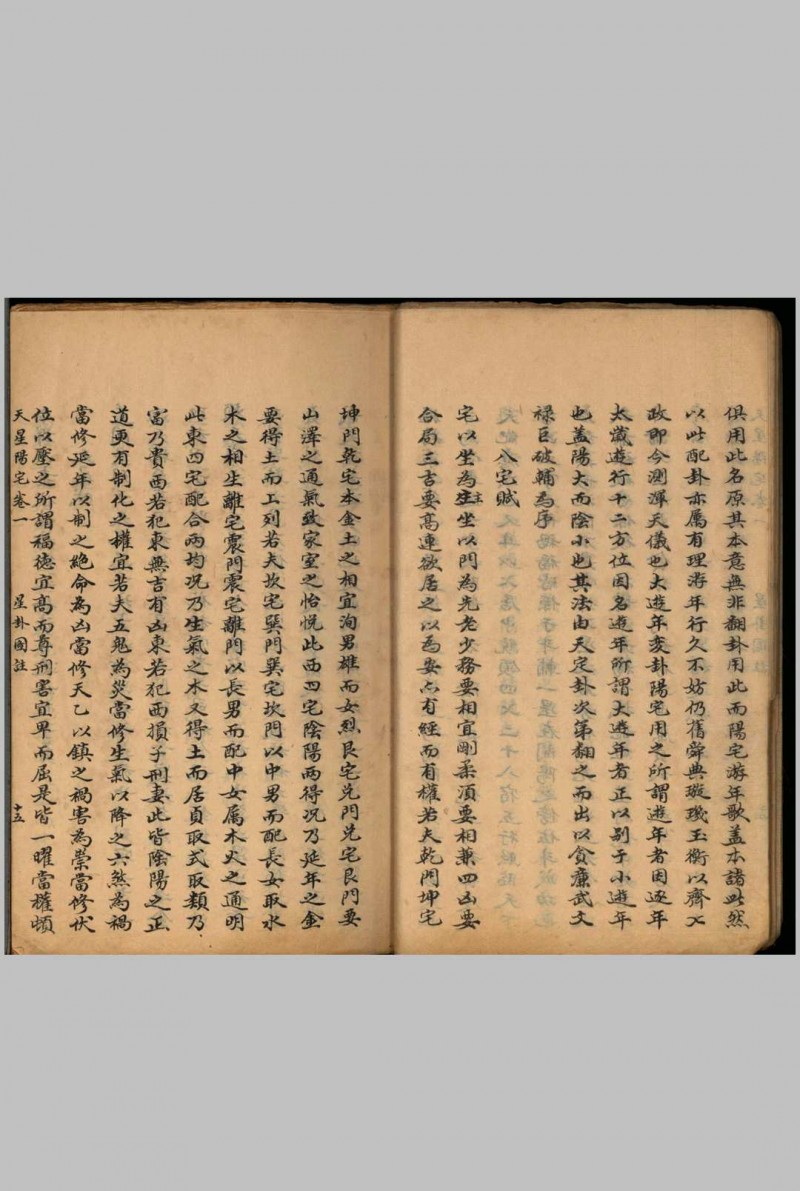 俱用此名原其本意無非翻卦用此而陽宅游年歌蓋本諸此然
以此配卦亦屬有理游年行久不妨仍舊舜典璇璣玉衡以齊七
政即今測渾天儀也大遊年变卦陽宅用之所謂遊年者因逐年
太歲遊行十二方位因名遊年所謂大遊年者正以别于小遊年
也蓋陽大而陰小也其法由天定卦次第翻之而出以貪廉武文
禄巨破輔為序
八宅賦
宅以坐為主坐以門為先老少務要相宜剛柔須要相兼四凶要
合局三吉要高連欲居之以為安亦有經而有權若夫乾門坤宅
坤門乾宅本金土之相宜洵男雄而女烈艮宅兌門兌宅艮門要
山澤之通氣致家室之怡悦此西四宅陰陽兩得况乃延年之金
要得土而工列若夫坎宅巽門巽宅坎門以中男而配長女取水
木之相生離宅震門震宅離門以長男而配中女属木火之通明
此東四宅配合兩均况乃生氣之木又得土而居貞取式取類乃
富乃貴西若犯東無吉有凶東若犯西損子刑妻此皆陰陽之正
道更有制化之權宜若夫五鬼為災當修生氣以降之六煞為禍
當修延年以制之絶命為凶當修天乙以鎮之禍害為祟當修伏
位以壓之所謂福德宜高而尊刑害宜卑而屈是皆一曜當權頓
天星陽宅卷一 星卦圖註 十五